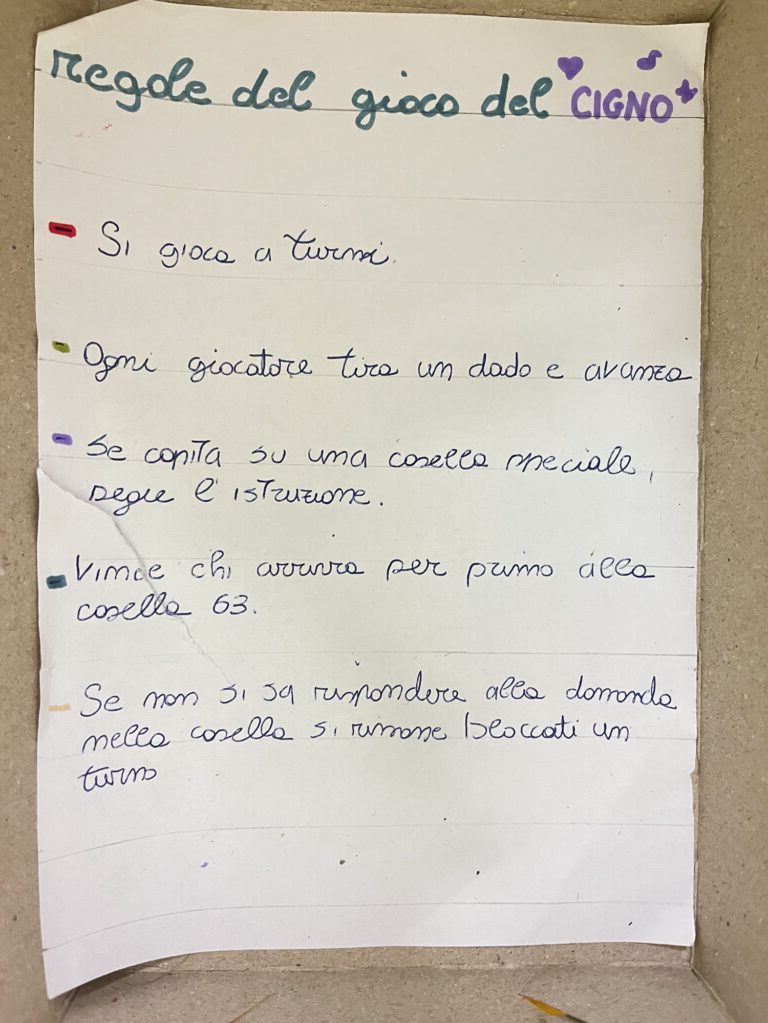 regole del gioco del CIGNO
- Si gioca a turni.
- Ogni giocatore tira un dado e avanza
- Se capita su una casella speciale,
segue l'istruzione.
- Vince chi arriva per primo alla
casella 63.
- Se non si sa rispondere alla domanda
nella casella si rimane bloccati un
turno